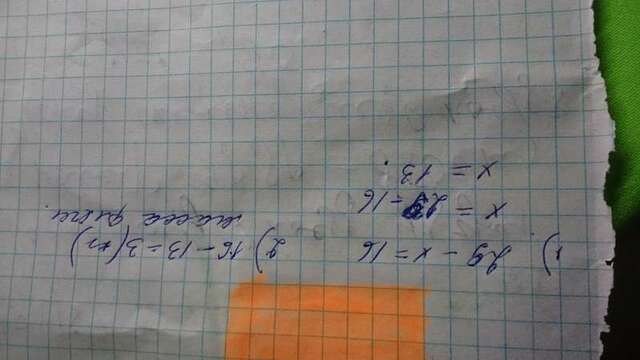 1). 29 - x = 16
x = 29 - 16
x = 13.
2) 16 - 13 = 3 (кг)
масса фляги.